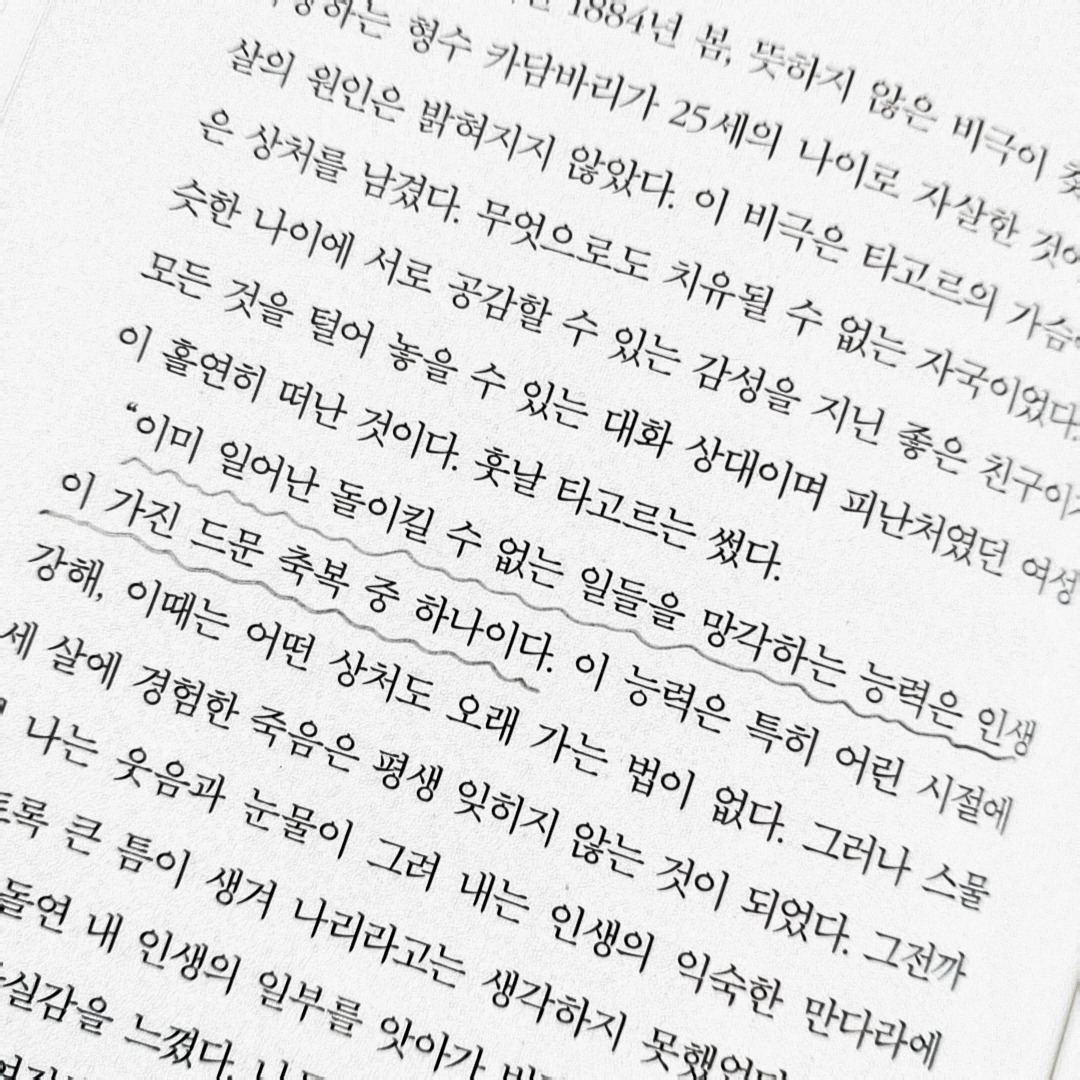 1884년 봄, 뜻하지 않은 비극이
하는 형수 카담바리가 25세의 나이로 자살한
살의 원인은 밝혀지지 않았다. 이 비극은 타고르의
은 상처를 남겼다. 무엇으로도 치유될 수 없는 자국이었다.
슷한 나이에 서로 공감할 수 있는 감성을 지닌 좋은
모든 것을 털어 놓을 수 있는 대화 상대이며 피난처였던 여성
이 홀연히 떠난 것이다. 훗날 타고르는 썼다.
“이미 일어난 돌이킬 수 없는 일들을 망각하는 능력은 인생
이 가진 드문 축복 중 하나이다. 이 능력은 특히 어린 시절에
강해, 이때는 어떤 상처도 오래 가는 법이 없다. 그러나 스물
세 살에 경험한 죽음은 평생 잊히지 않는 것이 되었다. 그전까
나는 웃음과 눈물이 그려 내는 인생의 익숙한 만다라에
큰 틈이 생겨 나리라고는 생각하지
돌연 내 인생의 일부를 앗아가
느꼈다.